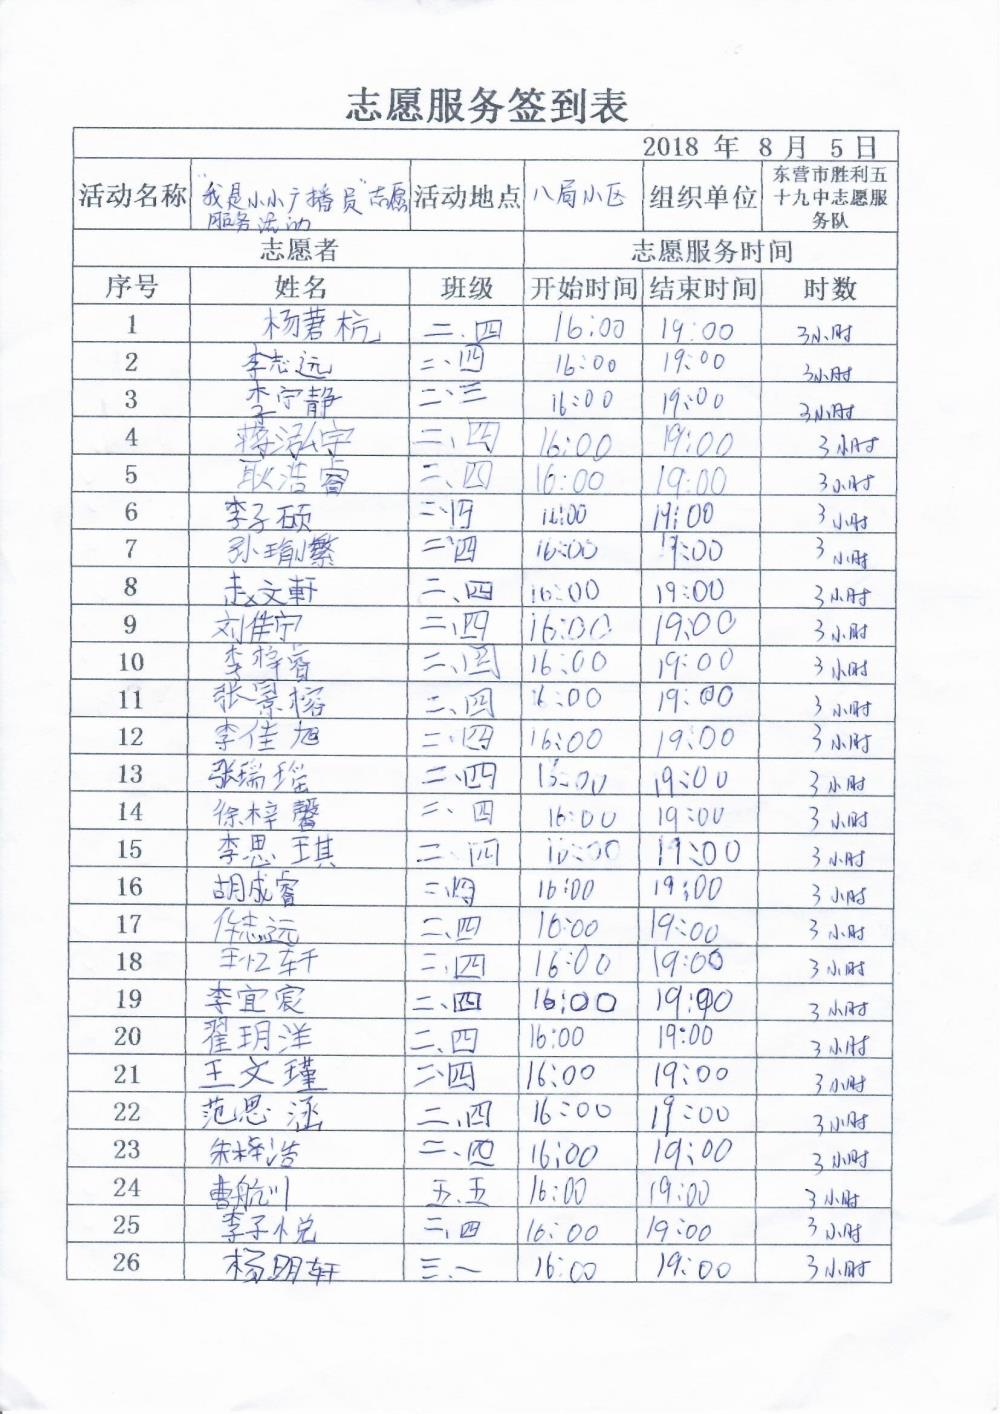 志愿服务签到表
2018 年 8 月 5 日
活动名称 "我是小小广播员"志愿服务活动 活动地点 八局小区 组织单位 东营市胜利五十九中志愿服务队
志愿者 志愿服务时间
序号 姓名 班级 开始时间 结束时间 时数
1 杨著杭 二.四 16:00 19:00 3小时
2 李志远 二、四 16:00 19:00 3小时
3 李宁静 二、三 16:00 19:00 3小时
4 蒋泓宇 二、四 16:00 19:00 3小时
5 耿浩睿 二、四 16:00 19:00 3小时
6 李子硕 二、四 16:00 19:00 3小时
7 孙 二、四 16:00 19:00 3小时
8 文軒 二、四 16:00 19:00 3小时
9 刘佳宁 二、四 16:00 19:00 3小时
10 李梓睿 二、四 16:00 19:00 3小时
11 张景榕 二、四 16:00 19:00 3小时
12 李佳旭 二、四 16:00 19:00 3小时
13 张瑞瑶 二、四 16:00 19:00 3小时
14 徐梓馨 二、四 16:00 19:00 3小时
15 李思琪 二、四 16:00 19:00 3小时
16 胡成睿 二、四 16:00 19:00 3小时
17 任志远 二、四 16:00 19:00 3小时
18 王忆轩 二、四 16:00 19:00 3小时
19 李宜宸 二、四 16:00 19:00 3小时
20 翟玥洋 二、四 16:00 19:00 3小时
21 王文瑾 二、四 16:00 19:00 3小时
22 范思涵 二、四 16:00 19:00 3小时
23 朱梓浩 二、四 16:00 19:00 3小时
24 曹航川 五.五 16:00 19:00 3小时
25 李子悦 二、四 16:00 19:00 3小时
26 杨明轩 三.一 16:00 19:00 3小时